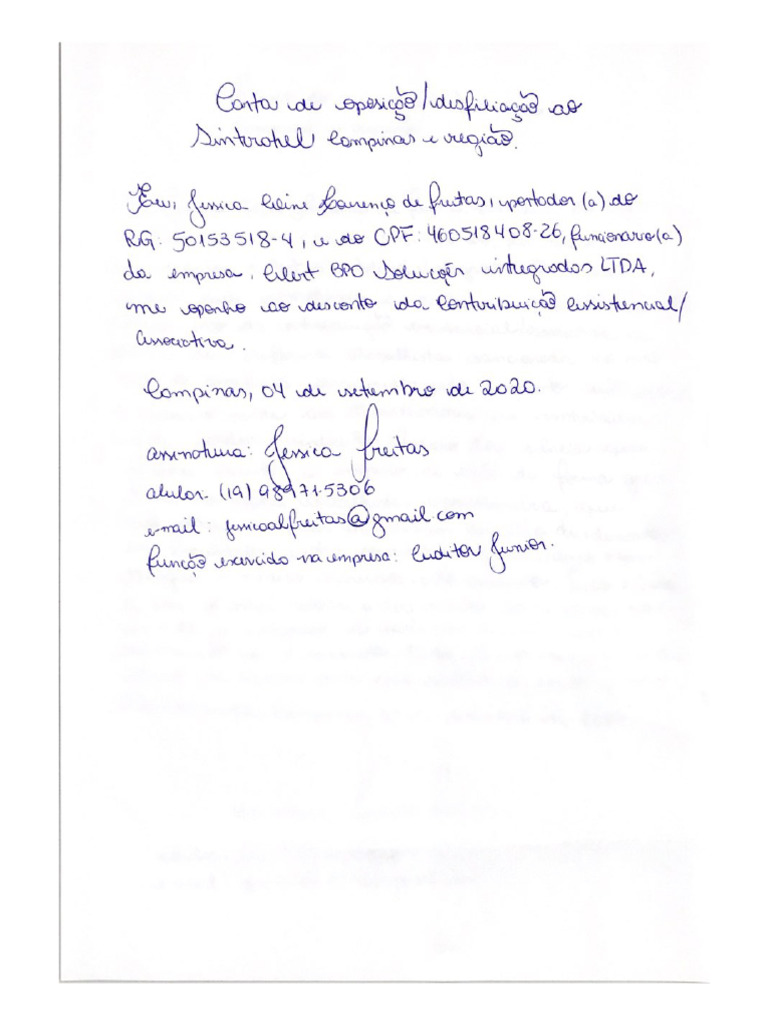 Carta de oposição/desfiliação ao
Sinterotel Campinas e região.
Eu, Jessica Aline Lourenço de Freitas, portador (a) do
RG: 50153518-4, e do CPF: 460518408-26, funcionario(a)
da empresa, Alert BPO Soluções integradas LTDA,
me oponho ao desconto da Contribuição Assistencial/
Associativa.
Campinas, 04 de setembro de 2020.
assinatura: Jessica Freitas
celular: (19) 98971-5306
e-mail: jessicaalfreitas@gmail.com
função exercido na empresa: Auditor Junior.